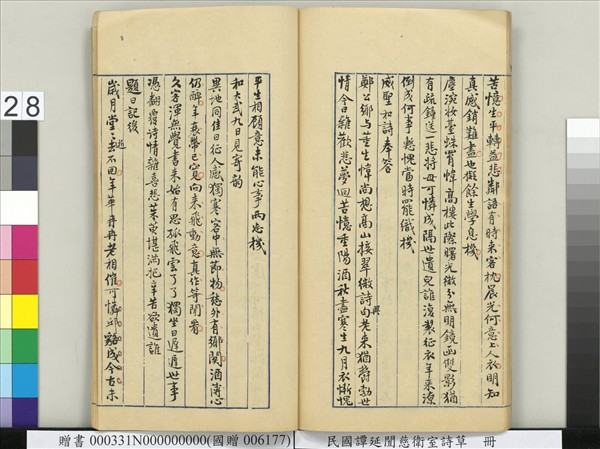 苦憶生平轉益悲鄰語有時來客枕晨光何意上人衣明知
真感銷難盡也擬餘生學息機
塵浣妝臺綵罥幃高樓此際曙光微分無明鏡函雙影猶
有疏鐘送一悲將母可憐成隔世遺兒誰復製征衣年來潦
倒成何事愁愧當時罷織機
威聖和詩奉答
鄭公鄉与董生幃尚想高山接翠微詩句
情今日雜歡悲夢回苦憶重陽酒秋盡寒生九月衣慚愧
平生相顧意未能心事兩忘機
和大武九日見寄韵
異地同佳日征人感獨寒客中無節物愁外有鄉關酒薄心
仍醉年衰鬢已斑向來飛動意真作等閒看
久客渾無覺書來始有思孤飛雲了了獨坐日遲遲世事
憑翻覆詩情雜喜悲茱萸堪滿把辛苦欲遺誰
題日記後
歲月堂堂去不回年華冉冉老相催可憐成今古未
28
贈書 000331N000000000(國贈 006177)
民國譚延闓慈衛室詩草 冊